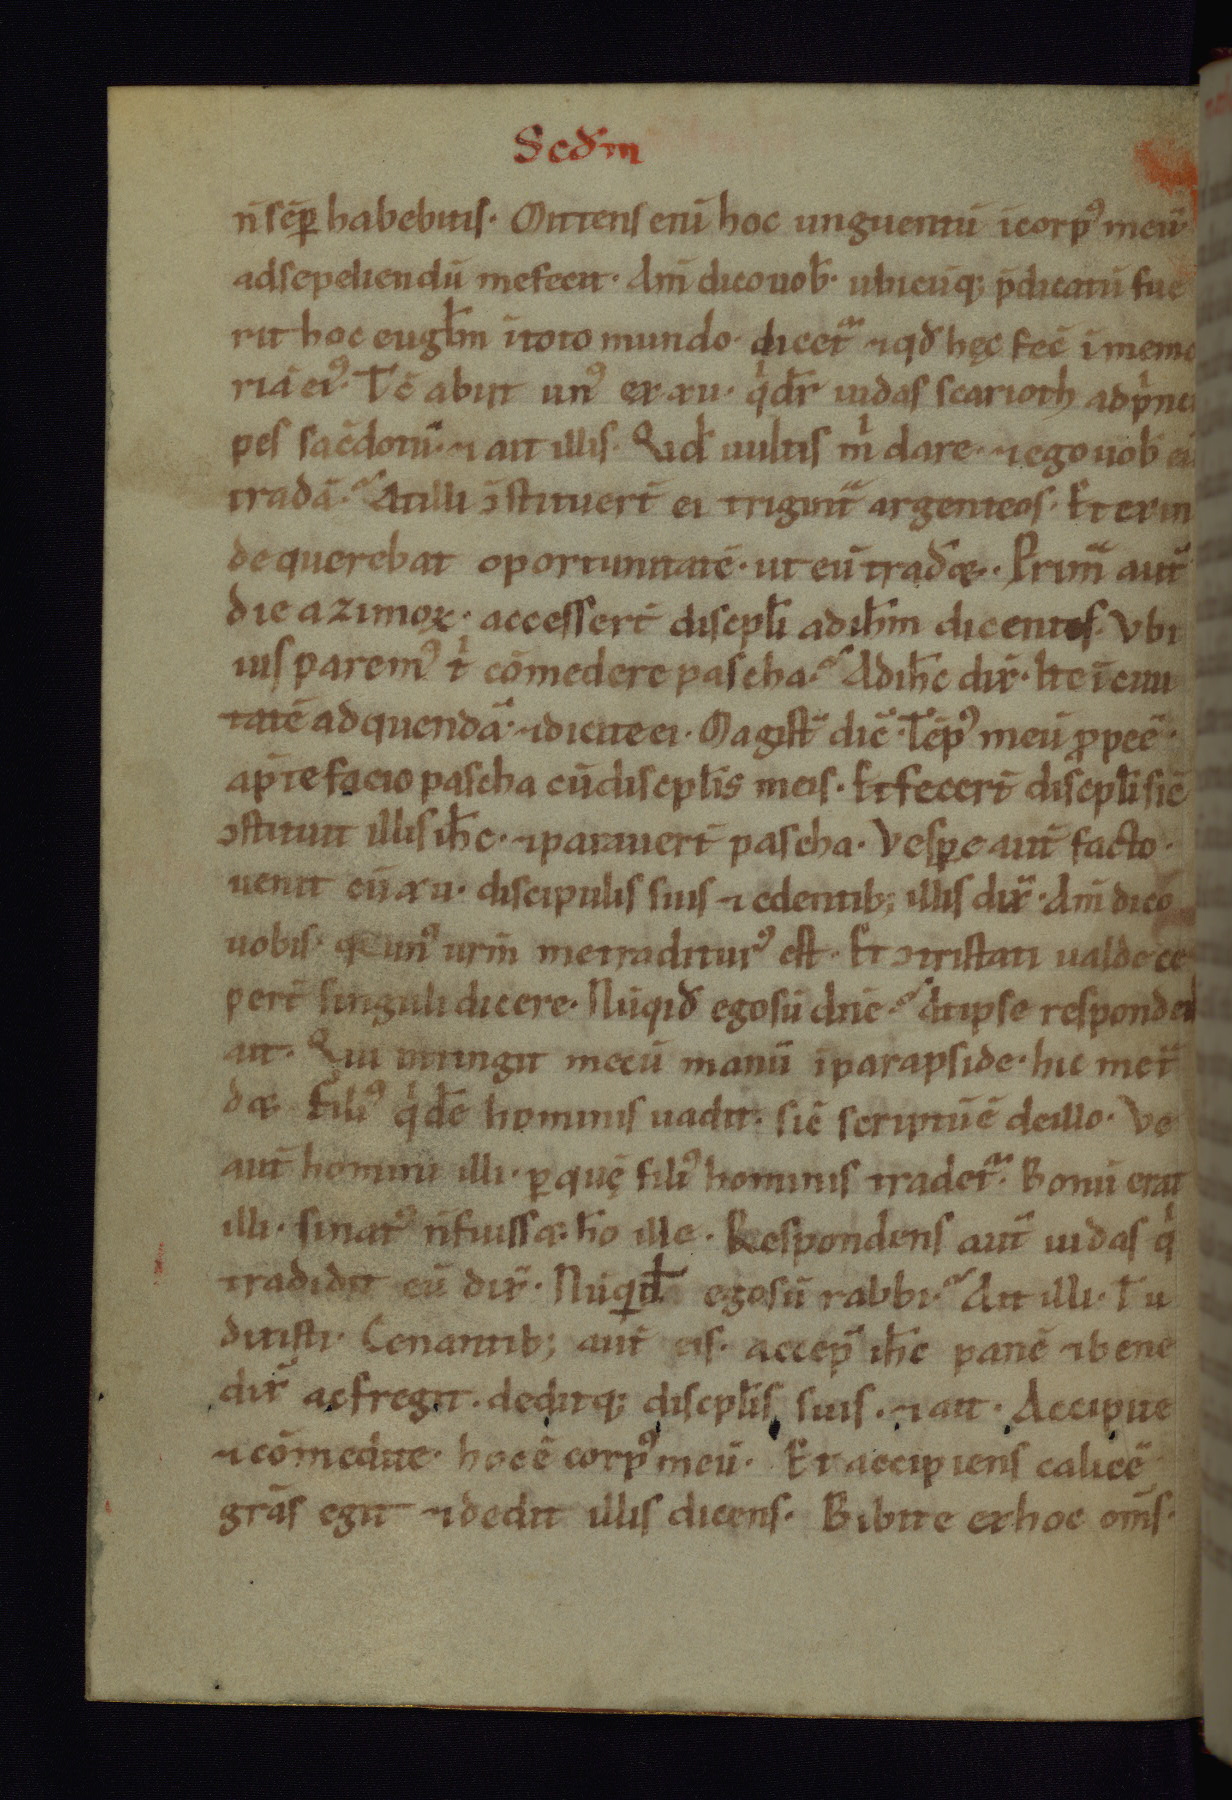 Scd̄m
n̄ sēp habebitis. Mittens eni hoc unguentū īcorp⁹ meū
adsepeliendū mefecit. Am̄ dico uob̄. ubicūq; p̄dicatū fue
rit hoc eugl̄m ītoto mundo. dicet᷑ ⁊ qd̄ hęc fec̄ ī memo
riā ei⁹. Tc̄ abiit un⁹ ex xii. qͥ dr̄ iudas scarioth adpͥnci
pes sac̄dotū. ⁊ ait illis. Qid̄ uultis mͥ dare. ⁊ ego uob̄ eū
tradā. At illi ↄstituert̄ ei trigint̄ argenteos. Et exin
de querebat oportunitatē. ut eū trad̄&. Prim̄ aut̄
die azimoꝝ. accessert̄ discpl̄i ad ih̄m dicentes. Vbi
uis parem⁹ tͥ cōmedere pascha. Ad ih̄c dix̄. Ite ī ciui
tatē ad quendā. ⁊ dicite ei. Magist̄ dic̄. Tēp⁹ meū ꝓpeē.
ap̄ te facio pascha cū discpl̄is meis. Et fecert̄ discpl̄i sic̄
ↄstituit illis ih̄c. ⁊ parauert̄ pascha. Vespe aut̄ facto.
uenit cū xii. discipulis suis ⁊ edentib; illis dix̄. Am̄ dico
uobis. q un⁹ ur̄m me traditur⁹ est. Et ↄtristati ualde ce
pert̄ singuli dicere. Nūqid̄ ego sū dn̄e. At ipse respondens
ait. Qui intingit mecū manū ī parapside. hic me t̄
d&. Fili⁹ qͥdē hominis uadit. sic̄ scriptū ē de illo. Ve
aut̄ homini illi. ꝑ quę fili⁹ hominis tradet᷑. Bonū erat
illi. si nat⁹ n̄ fuiss& hō ille. Respondens aut̄ iudas qͥ
tradidit eū dix̄. Nūquid̄ ego sū rabbi. Ait illi. Tu
dixisti. Cenantib; aut̄ eis. accep̄ ih̄c panē ⁊ bene
dix̄ ac fregit. deditq; discpl̄is suis. ⁊ ait. Accipite
⁊ cōmedite. hoc ē corp⁹ meū. Et accipiens calicē
grās egit ⁊ dedit illis dicens. Bibite ex hoc om̄s.